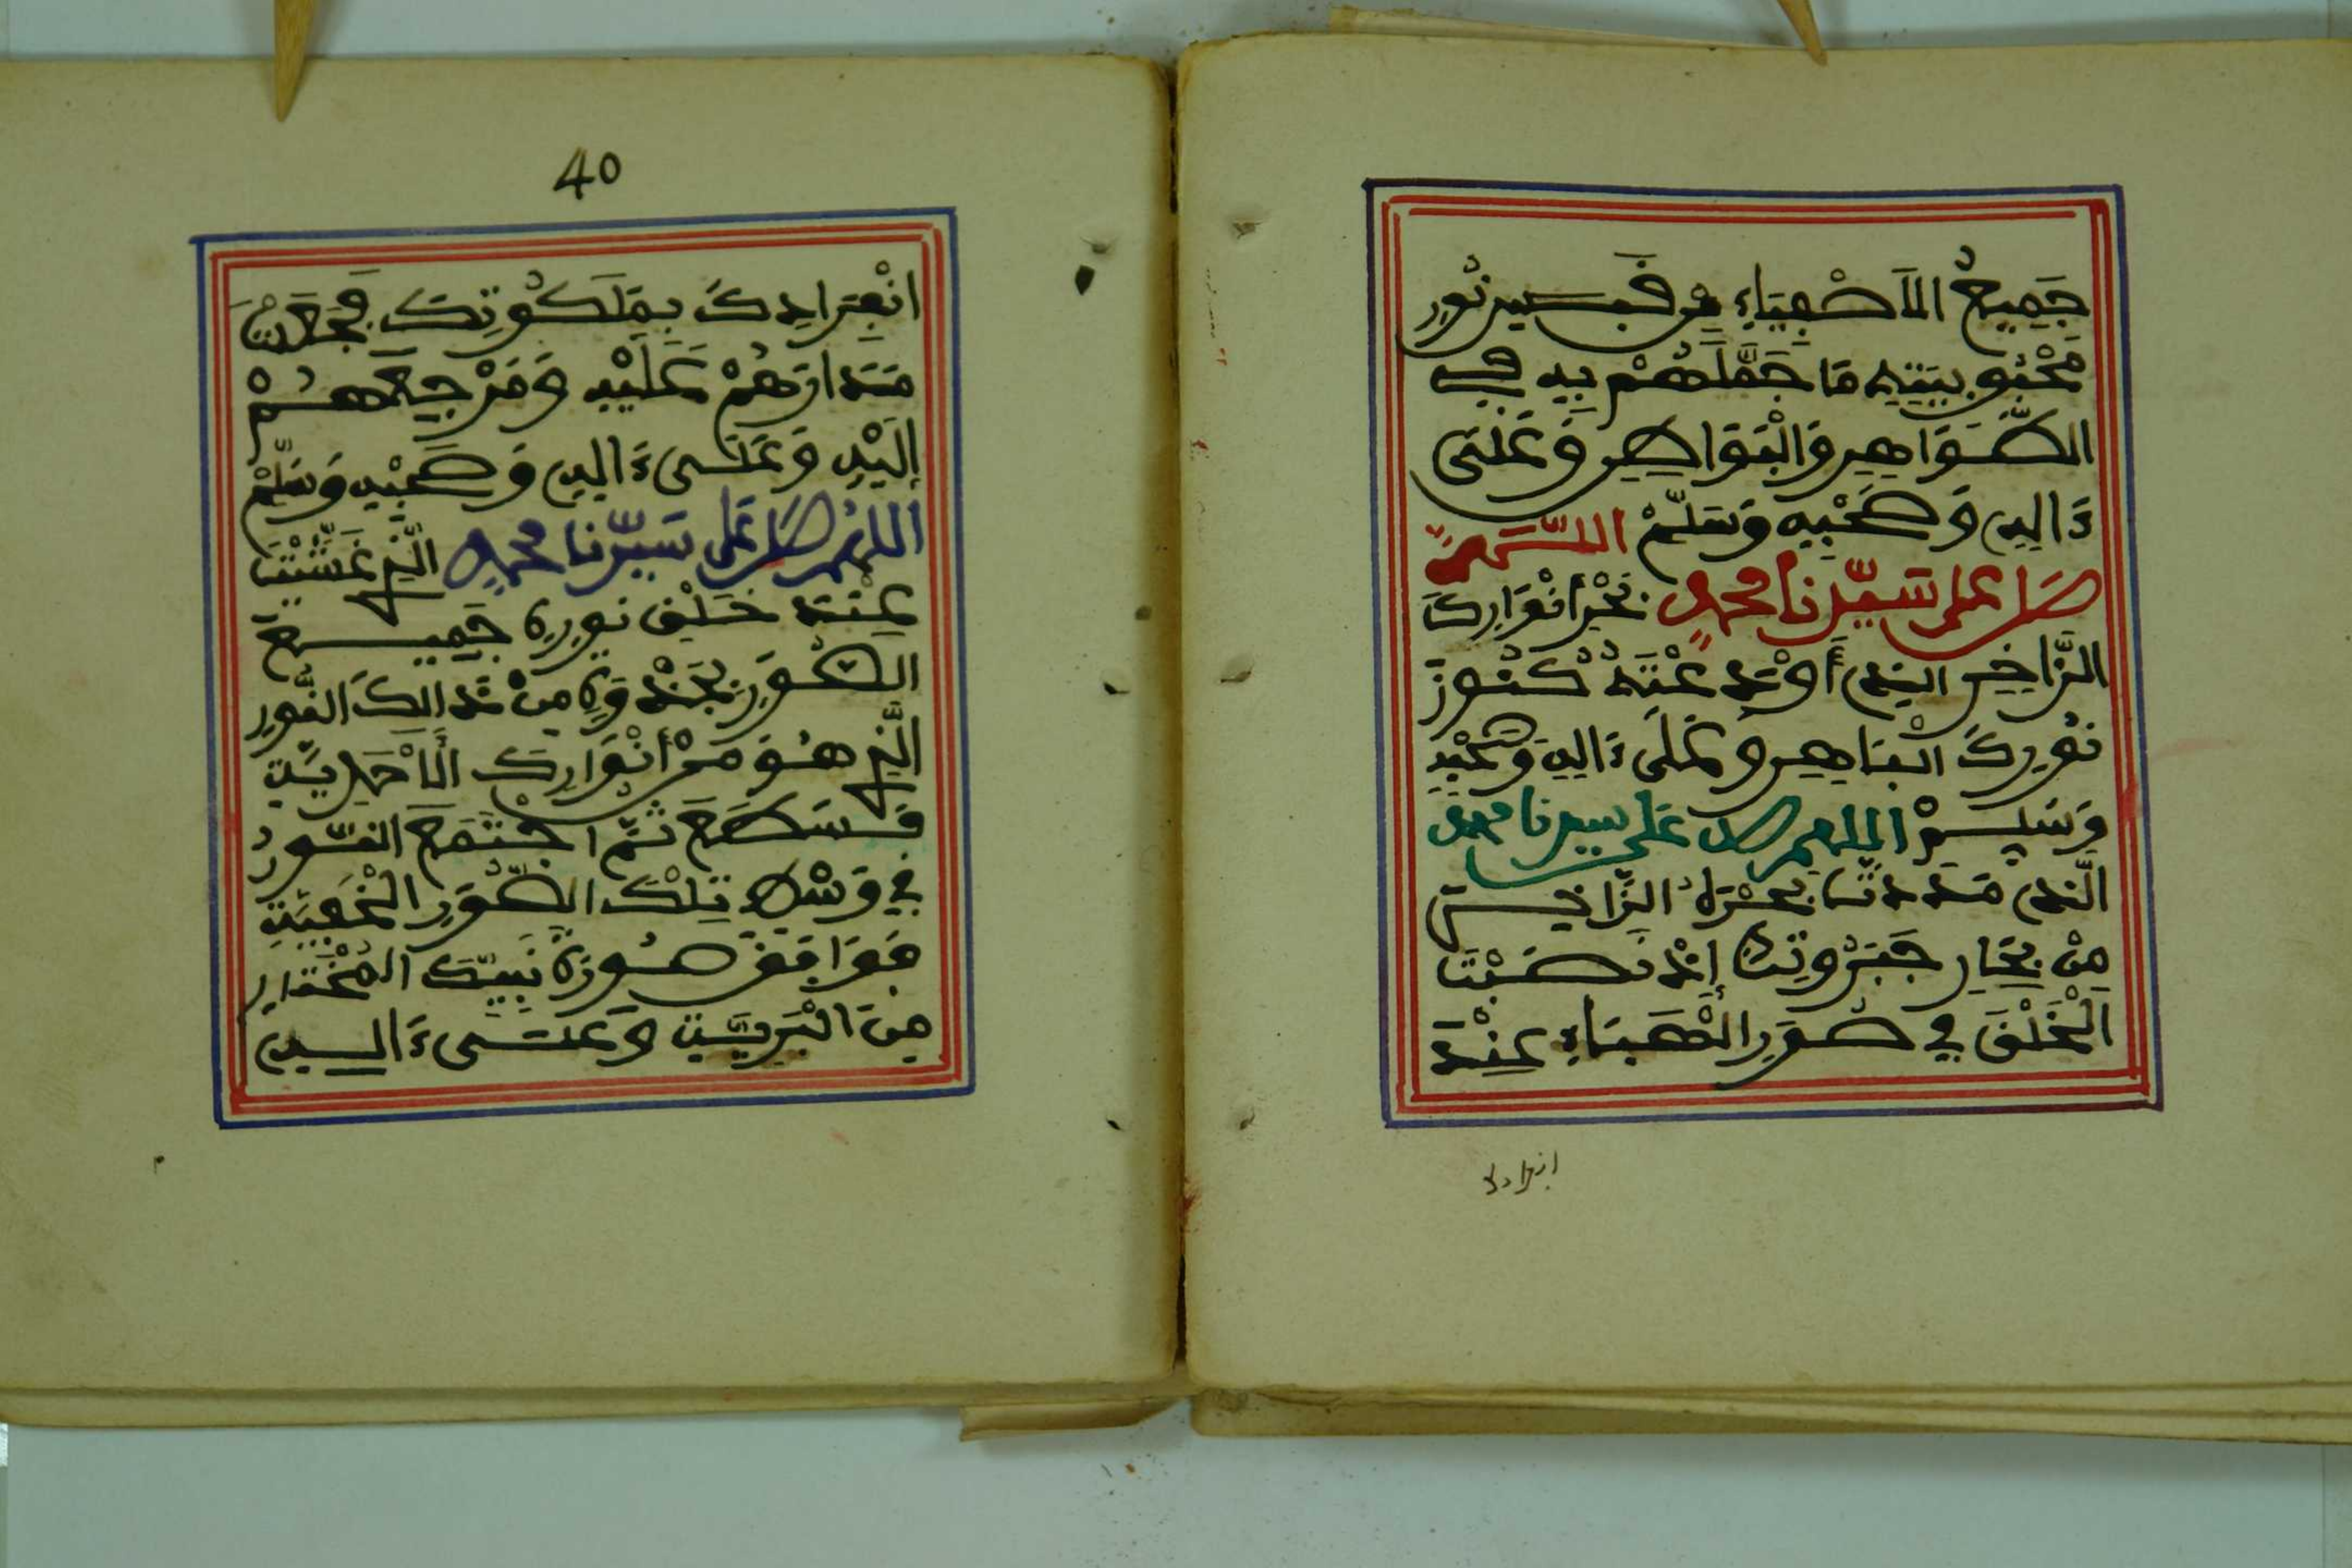 جَمِيعُ الأَصْفِيَاءِ مِن قَبَسِ نُورِ
مَحْبُوبِيَتِهِ مَا جَمَّلَهُمْ بِهِ فِي
الظَّوَاهِرِ وَالْبَوَاطِنِ وَعَلَى
ءَالِهِ وَصَحْبِهِ وَسَلَّمْ اللَّهُمَّ
صَلِّ عَلَى سَيِّدِنَا مُحَمَّدٍ بَحْرِ أَنْوَارِكَ
الزَّاخِرِ الذِي أَوْدَعْتَهُ كُنُوزَ
نُورِكَ الْبَاهِرِ وَعَلَى ءَالِهِ وَصَحْبِهِ
وَسَلِّمْ اللهم صل على سيدنا محمد
الَّذِي مَدَدْتَ بَحْرَهُ الزَّاخِرَ
مِنْ بِحَارِ جَبَرُوتِكَ إِذْ نَصَبْتَ
الْخَلْقَ فِي صُوَرِ الْهَبَاءِ عِنْدَ
انفرادك
40
انْفِرَادِكَ بِمَلَكُوتِكَ فَجَعَلْتَ
مَدَارَهُمْ عَلَيْهِ وَمَرْجِعَهُمْ
إِلَيْهِ وَعَلَى ءَالِهِ وَصَحْبِهِ وَسَلِّمْ
اللهُمَّ صَلِّ عَلَى سَيِّدِنَا مُحَمَّدٍ الَّذِي غَشَّيْتَ
عِنْدَ خَلْقِ نُورِهِ جَمِيعَ
الصُّوَرِ بِجَذْوَةٍ مِنْ ذَالِكَ النُّورِ
الَّذِي هُوَ مِنْ أَنْوَارِكَ الأَحَدِيَّةِ
فَسَطَعَ ثُمَّ اجْتَمَعَ النُّورُ
فِي وَسْطِ تِلْكَ الصُّوَرِ الْخَفِيَّةِ
فَوَافَقَ صُورَةَ نَبِيِّكَ الْمُخْتَارِ
مِنَ الْبَرِيَّةِ وَعَلَى ءَالِهِ